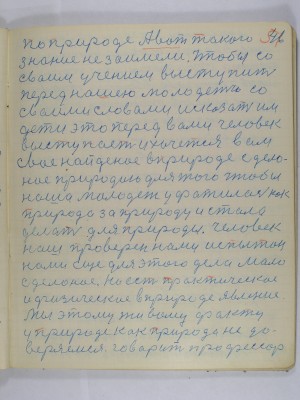 по природе. А вот такого
знание не заимели. Чтобы со
своим учением выступит
перед нашею молодежью со
своими словами и сказат им
дети это перед вами человек
выступает и хочется вам
свое найденое в природе сдело-
ное природою для того чтобы
наша молодеж ухватилась как
природа за природу и стала
делать для природы. Человек
наш проверен нами испытан
нами еще для этого дела мало
сделоное, но ест практическое
и физическое в природе явление.
Мы этому живому факту
у природе как природа не до-
веряемся. говарит професор